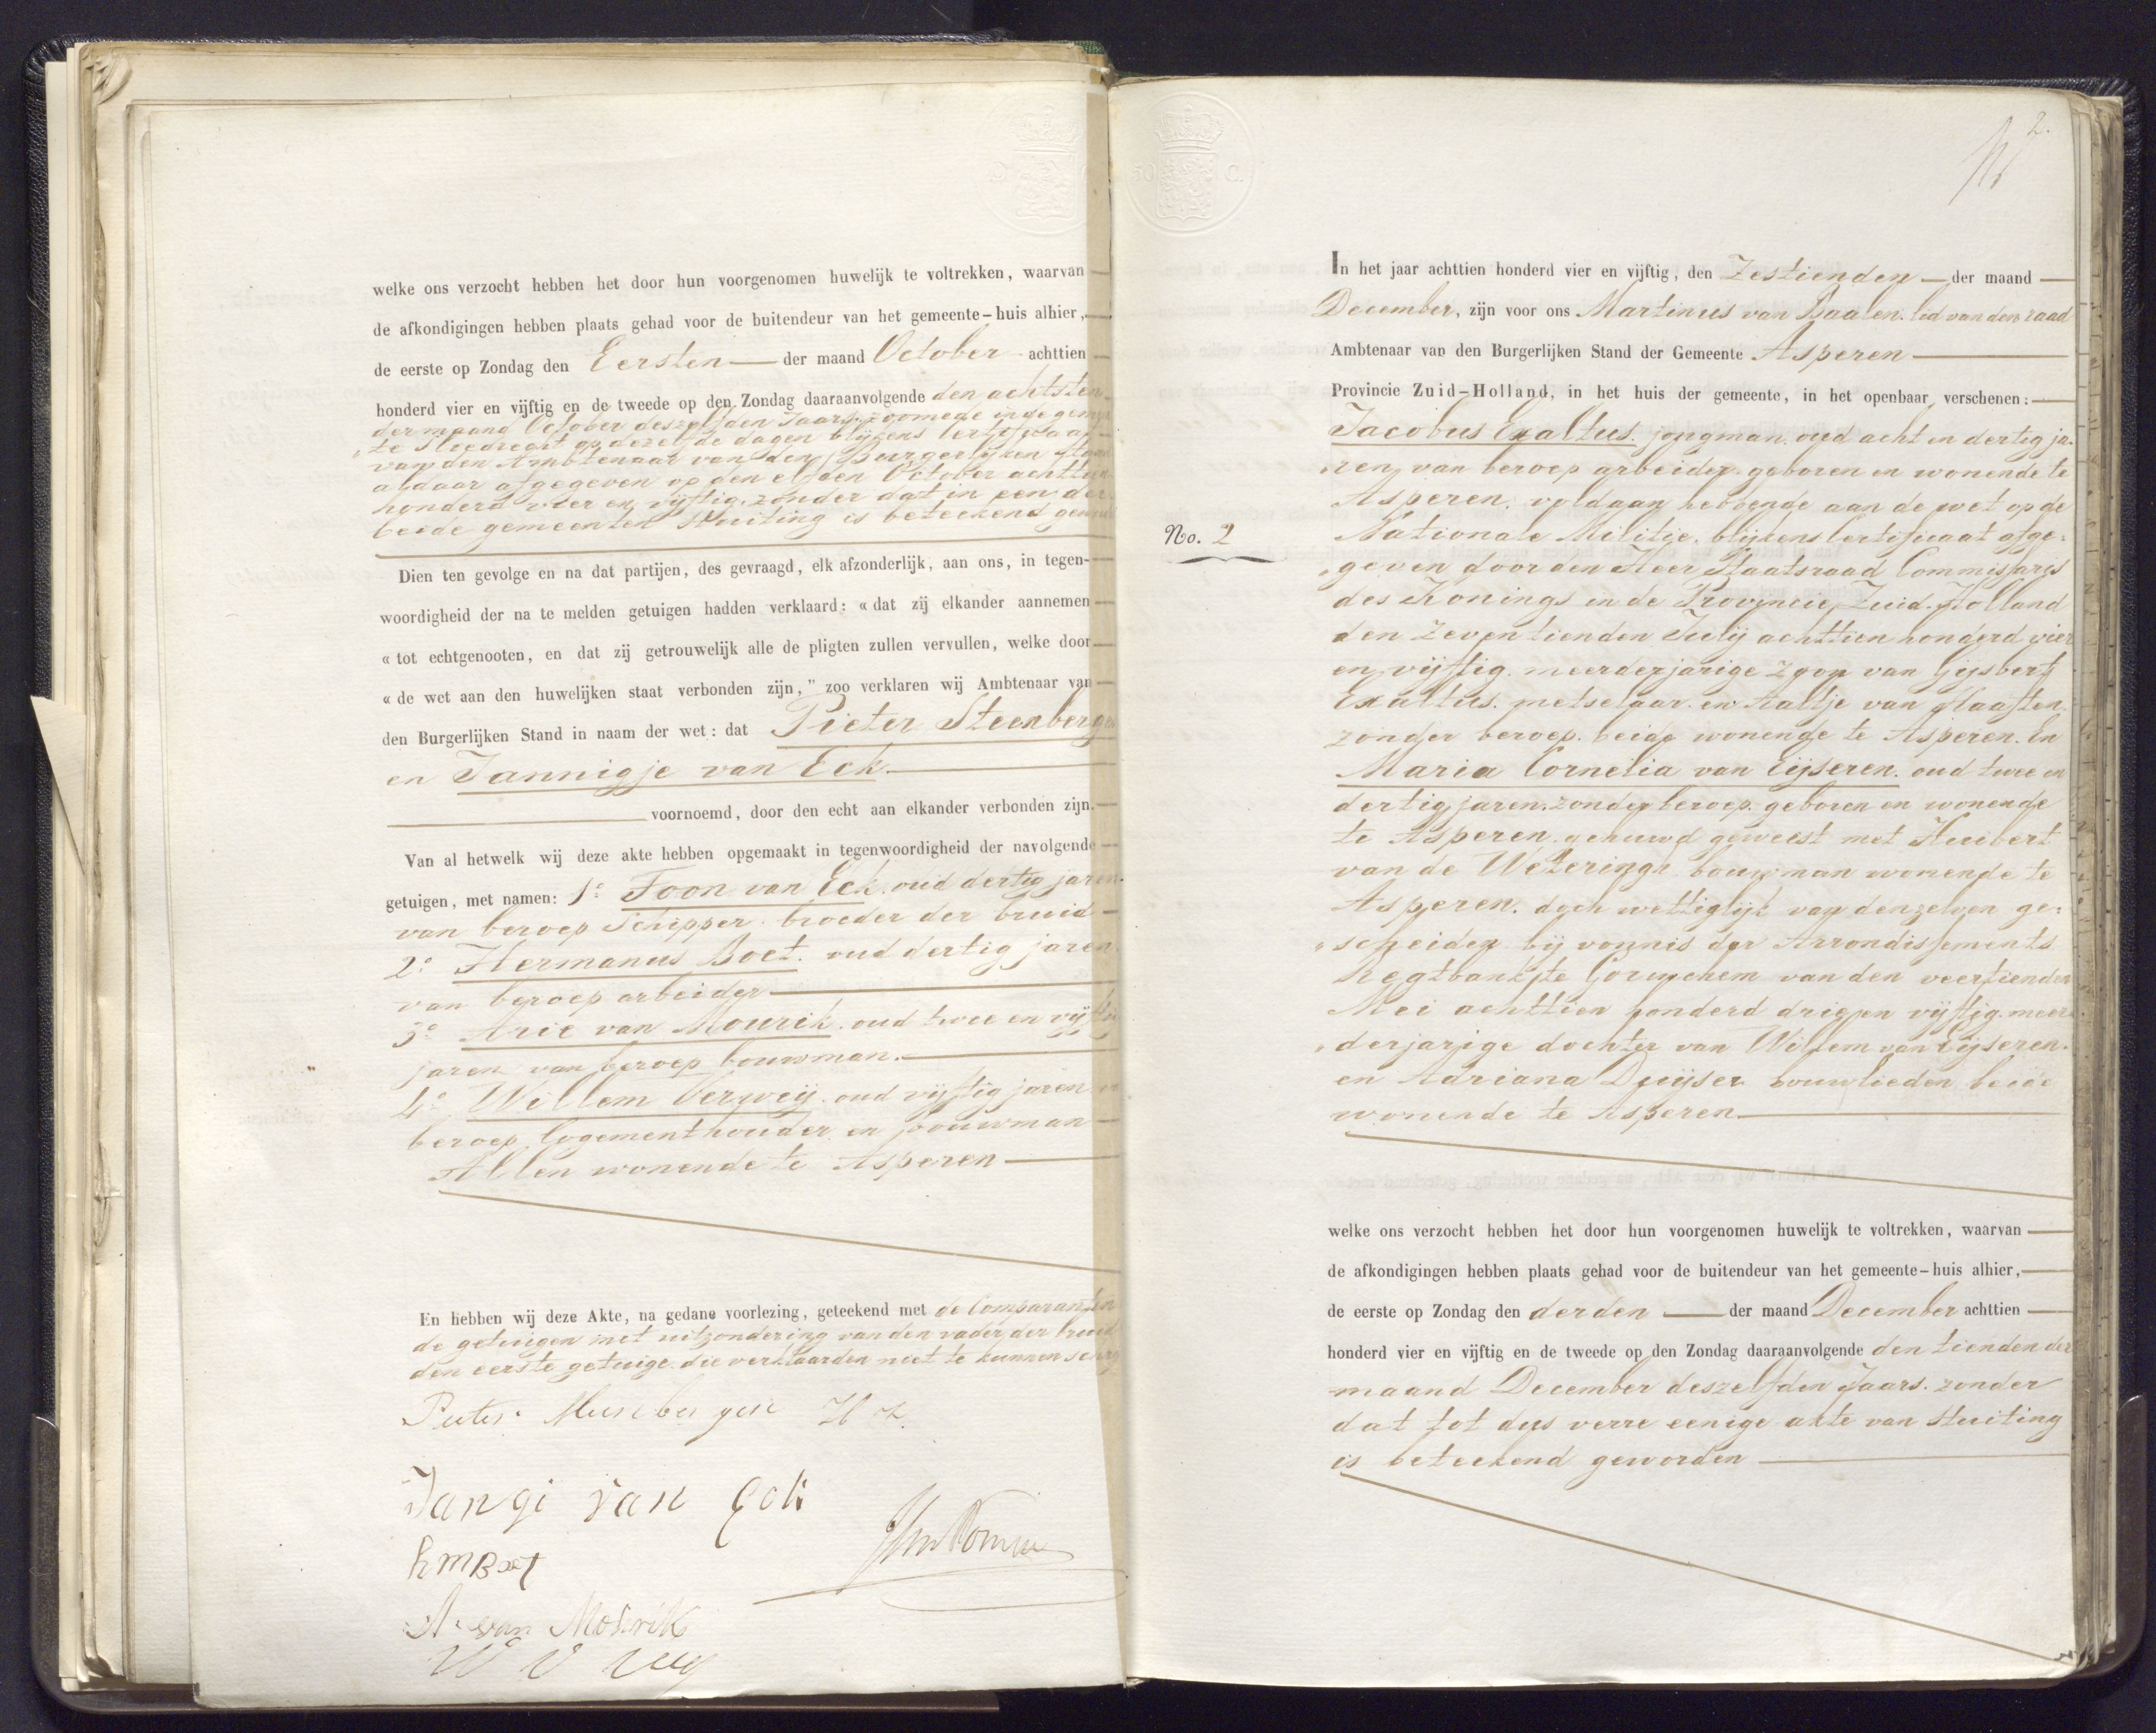 welke ons verzocht hebben het door hun voorgenomen huwelijk te voltrekken, waarvan
de afkondigingen hebben plaats gehad voor de buitendeur van het gemeente-huis alhier,
de eerste op Zondag den Eersten der maand October achttien
honderd vier en vijftig en de tweede op den Zondag daaraanvolgende den achtsten
der maand October deszelfden Jaars, zoomede in de
te Sliedrecht op dezelfde dagen blijkens Certificaat
van den Ambtenaar van den Burgerlijken
aldaar afgegeven op den elfden October
honderd vier en vijftig, zonder dat in een der
beide gemeenten stuiting is beteekend
Dien ten gevolge en na dat partijen, des gevraagd, elk afzonderlijk, aan ons, in tegen-
woordigheid der na te melden getuigen hadden verklaard: « dat zij elkander aannemen
« tot echtgenooten, en dat zij getrouwelijk alle de pligten zullen vervullen, welke door
« de wet aan den huwelijken staat verbonden zijn," zoo verklaren wij Ambtenaar van
den Burgerlijken Stand in naam der wet: dat Pieter Steenberge
en Jannigje van Eck.
voornoemd, door den echt aan elkander verbonden zijn.
Van al hetwelk wij deze akte hebben opgemaakt in tegenwoordigheid der navolgende
getuigen, met namen: 1º Toon van Eck. oud dertig jaren
van beroep Schipper. broeder der bruid
2º Hermanus Boet. oud dertig jaren
van beroep arbeider
3º Arie van Mourik. oud twee en
jaren van beroep bouwman.
4º Willem Verweij. oud vijftig jaren
beroep logementhouder en bouwman
Allen wonende te Asperen
En hebben wij deze Akte, na gedane voorlezing, geteekend met de Comparanten
de getuigen met uitzondering van den vader der bruid
den eerste getuige. die verklaarden niet te kunnen
Jangi van Eck
h m Boet
A. van Mourik
2.
No. 2
In het jaar achttien honderd vier en vijftig, den Zestienden der maand
December, zijn voor ons Martinus van Baalen. lid van den raad
Ambtenaar van den Burgerlijken Stand der Gemeente Asperen
Provincie Zuid-Holland, in het huis der gemeente, in het openbaar verschenen:
Jacobus Exaltus. jongman. oud acht en dertig ja-
ren, van beroep arbeider. geboren en wonende te
Asperen. voldaan hebbende aan de wet op de
Nationale Militie. blijkens Certificaat afge-
geven door den Heer Staatsraad Commissaris
des Konings in de Provincie Zuid-Holland
den zeventienden Julij achttien honderd vier
en vijftig. meerderjarige zoon van Gijsbert
Exaltus. metselaar. en Aaltje van Haaften.
zonder beroep. beide wonende te Asperen. En
Maria Cornelia van Eijseren. oud twee en
dertig jaren. zonder beroep. geboren en wonende
te Asperen. gehuwd geweest met Huibert
van de Wetering. bouwman wonende te
Asperen. doch wettiglijk van denzelven ge-
scheiden bij vonnis der Arrondissements
Regtbank te Gorinchem van den veertienden
Mei achttien honderd drie en vijftig. meer
derjarige dochter van Willem van Eijseren.
en Adriana Duijser bouwlieden beide
wonende te Asperen
welke ons verzocht hebben het door hun voorgenomen huwelijk te voltrekken, waarvan
de afkondigingen hebben plaats gehad voor de buitendeur van het gemeente-huis alhier,
de eerste op Zondag den derden der maand December achttien
honderd vier en vijftig en de tweede op den Zondag daaraanvolgende den tienden der
maand December deszelfden Jaars. zonder
dat tot dus verre eenige akte van stuiting
is beteekend geworden